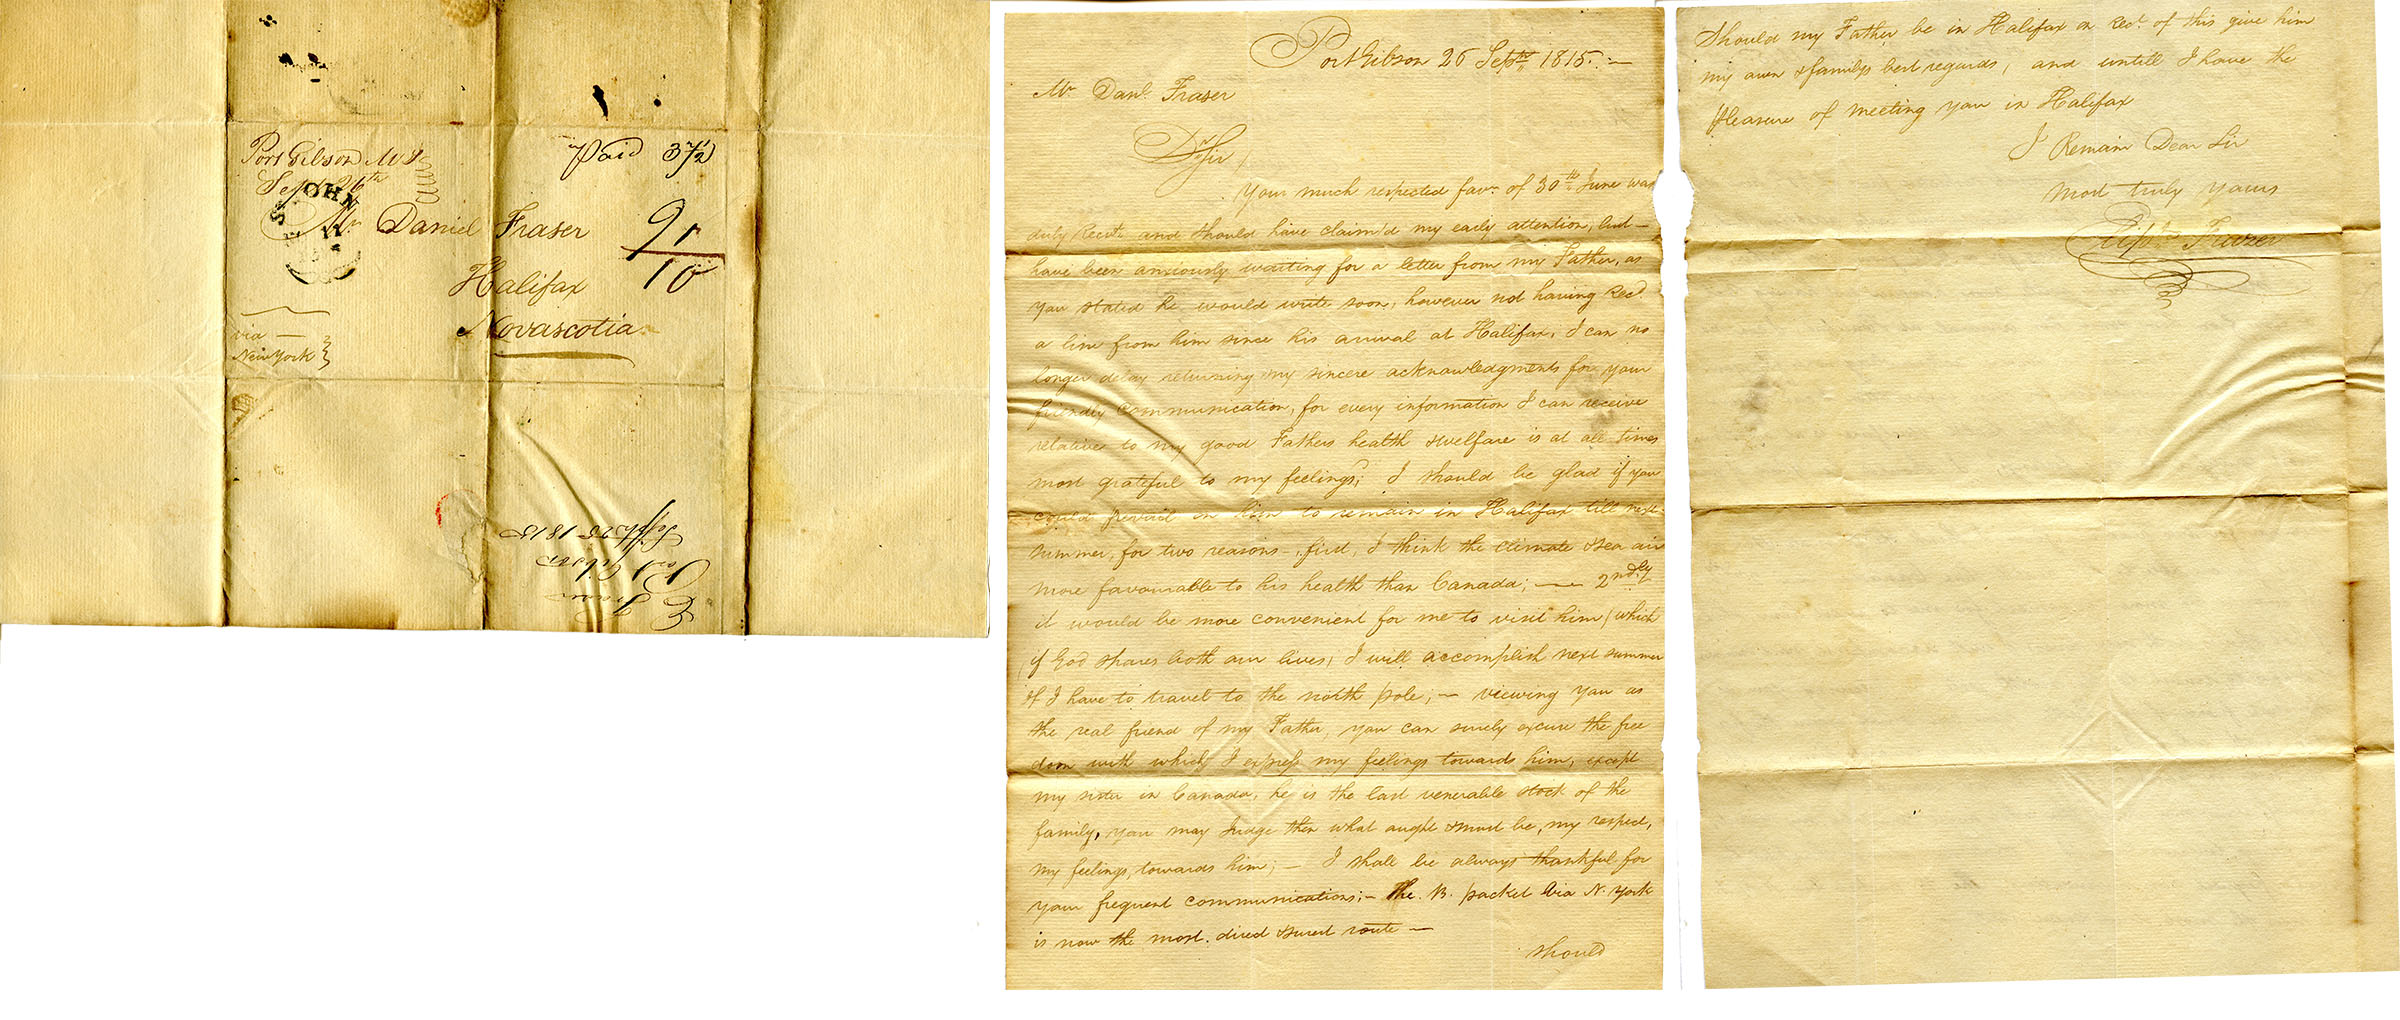 Port Gibson M.T.
Sept 26th
Paid 37½
ST JOHN
Mr Daniel Fraser
Halifax
Novascotia
9
10
via —
New York
E Frazer
Port Gibson
Sepr 26 1815
Port Gibson 26 Septr 1815. —
Mr Danl. Fraser
Dr Sir,
Your much respected favr. of 30th June was
duly Recvd. and should have claim'd my early attention, but —
have been anxiously waiting for a letter from my Father, as
you stated he would write soon, however not having Recd.
a line from him since his arrival at Halifax, I can no
longer delay returning my sincere acknowledgments for your
friendly Communication, for every information I can receive
relative to my good Fathers health & welfare is at all times
most grateful to my feelings; I should be glad if you
could prevail on him to remain in Halifax till next
summer, for two reasons —, first, I think the climate & sea air
more favourable to his health than Canada; — 2ndly
it would be more convenient for me to visit him (which
(if God spares both our lives) I will accomplish next summer
if I have to travel to the north pole; — viewing you as
the real friend of my Father, you can surely excuse the free
dom with which I express my feelings towards him, except
my sister in Canada, he is the last venerable stock of the
family, you may Judge then what aught & must be, my respect,
my feelings, towards him; — I shall be always thankful for
your frequent communications; — The. B. packet via N. York
is now the most. direct & surest route —
should
Should my Father be in Halifax on Recd. of this give him
my own & familys best regards, and untill I have the
pleasure of meeting you in Halifax
I Remain Dear Sir
most truly yours
Frazer